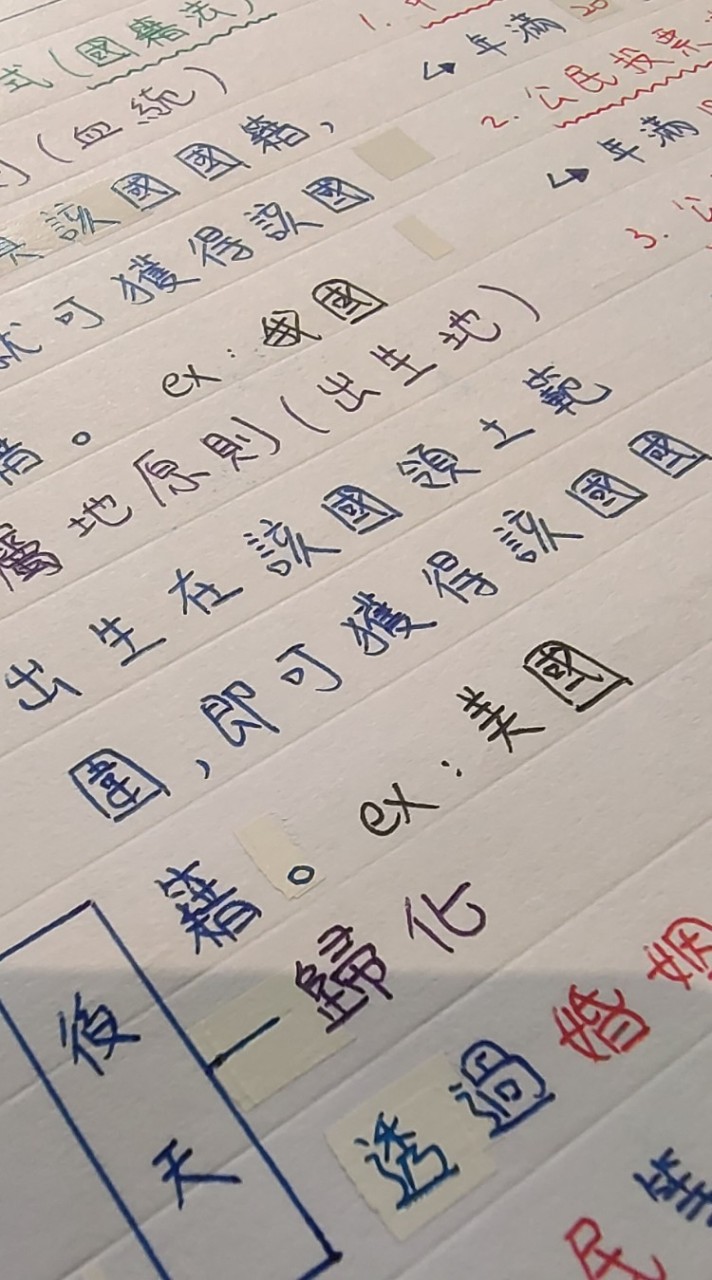 式(國籍法)
(血統)
該國國籍，
就可獲得該國
籍。ex：我國
屬地原則(出生地)
出生在該國領土範
圍，即可獲得該國國
籍。ex：美國
後天
歸化
透過婚姻
民
1.
↳年滿20
2.公民投票
↳年滿
3.公